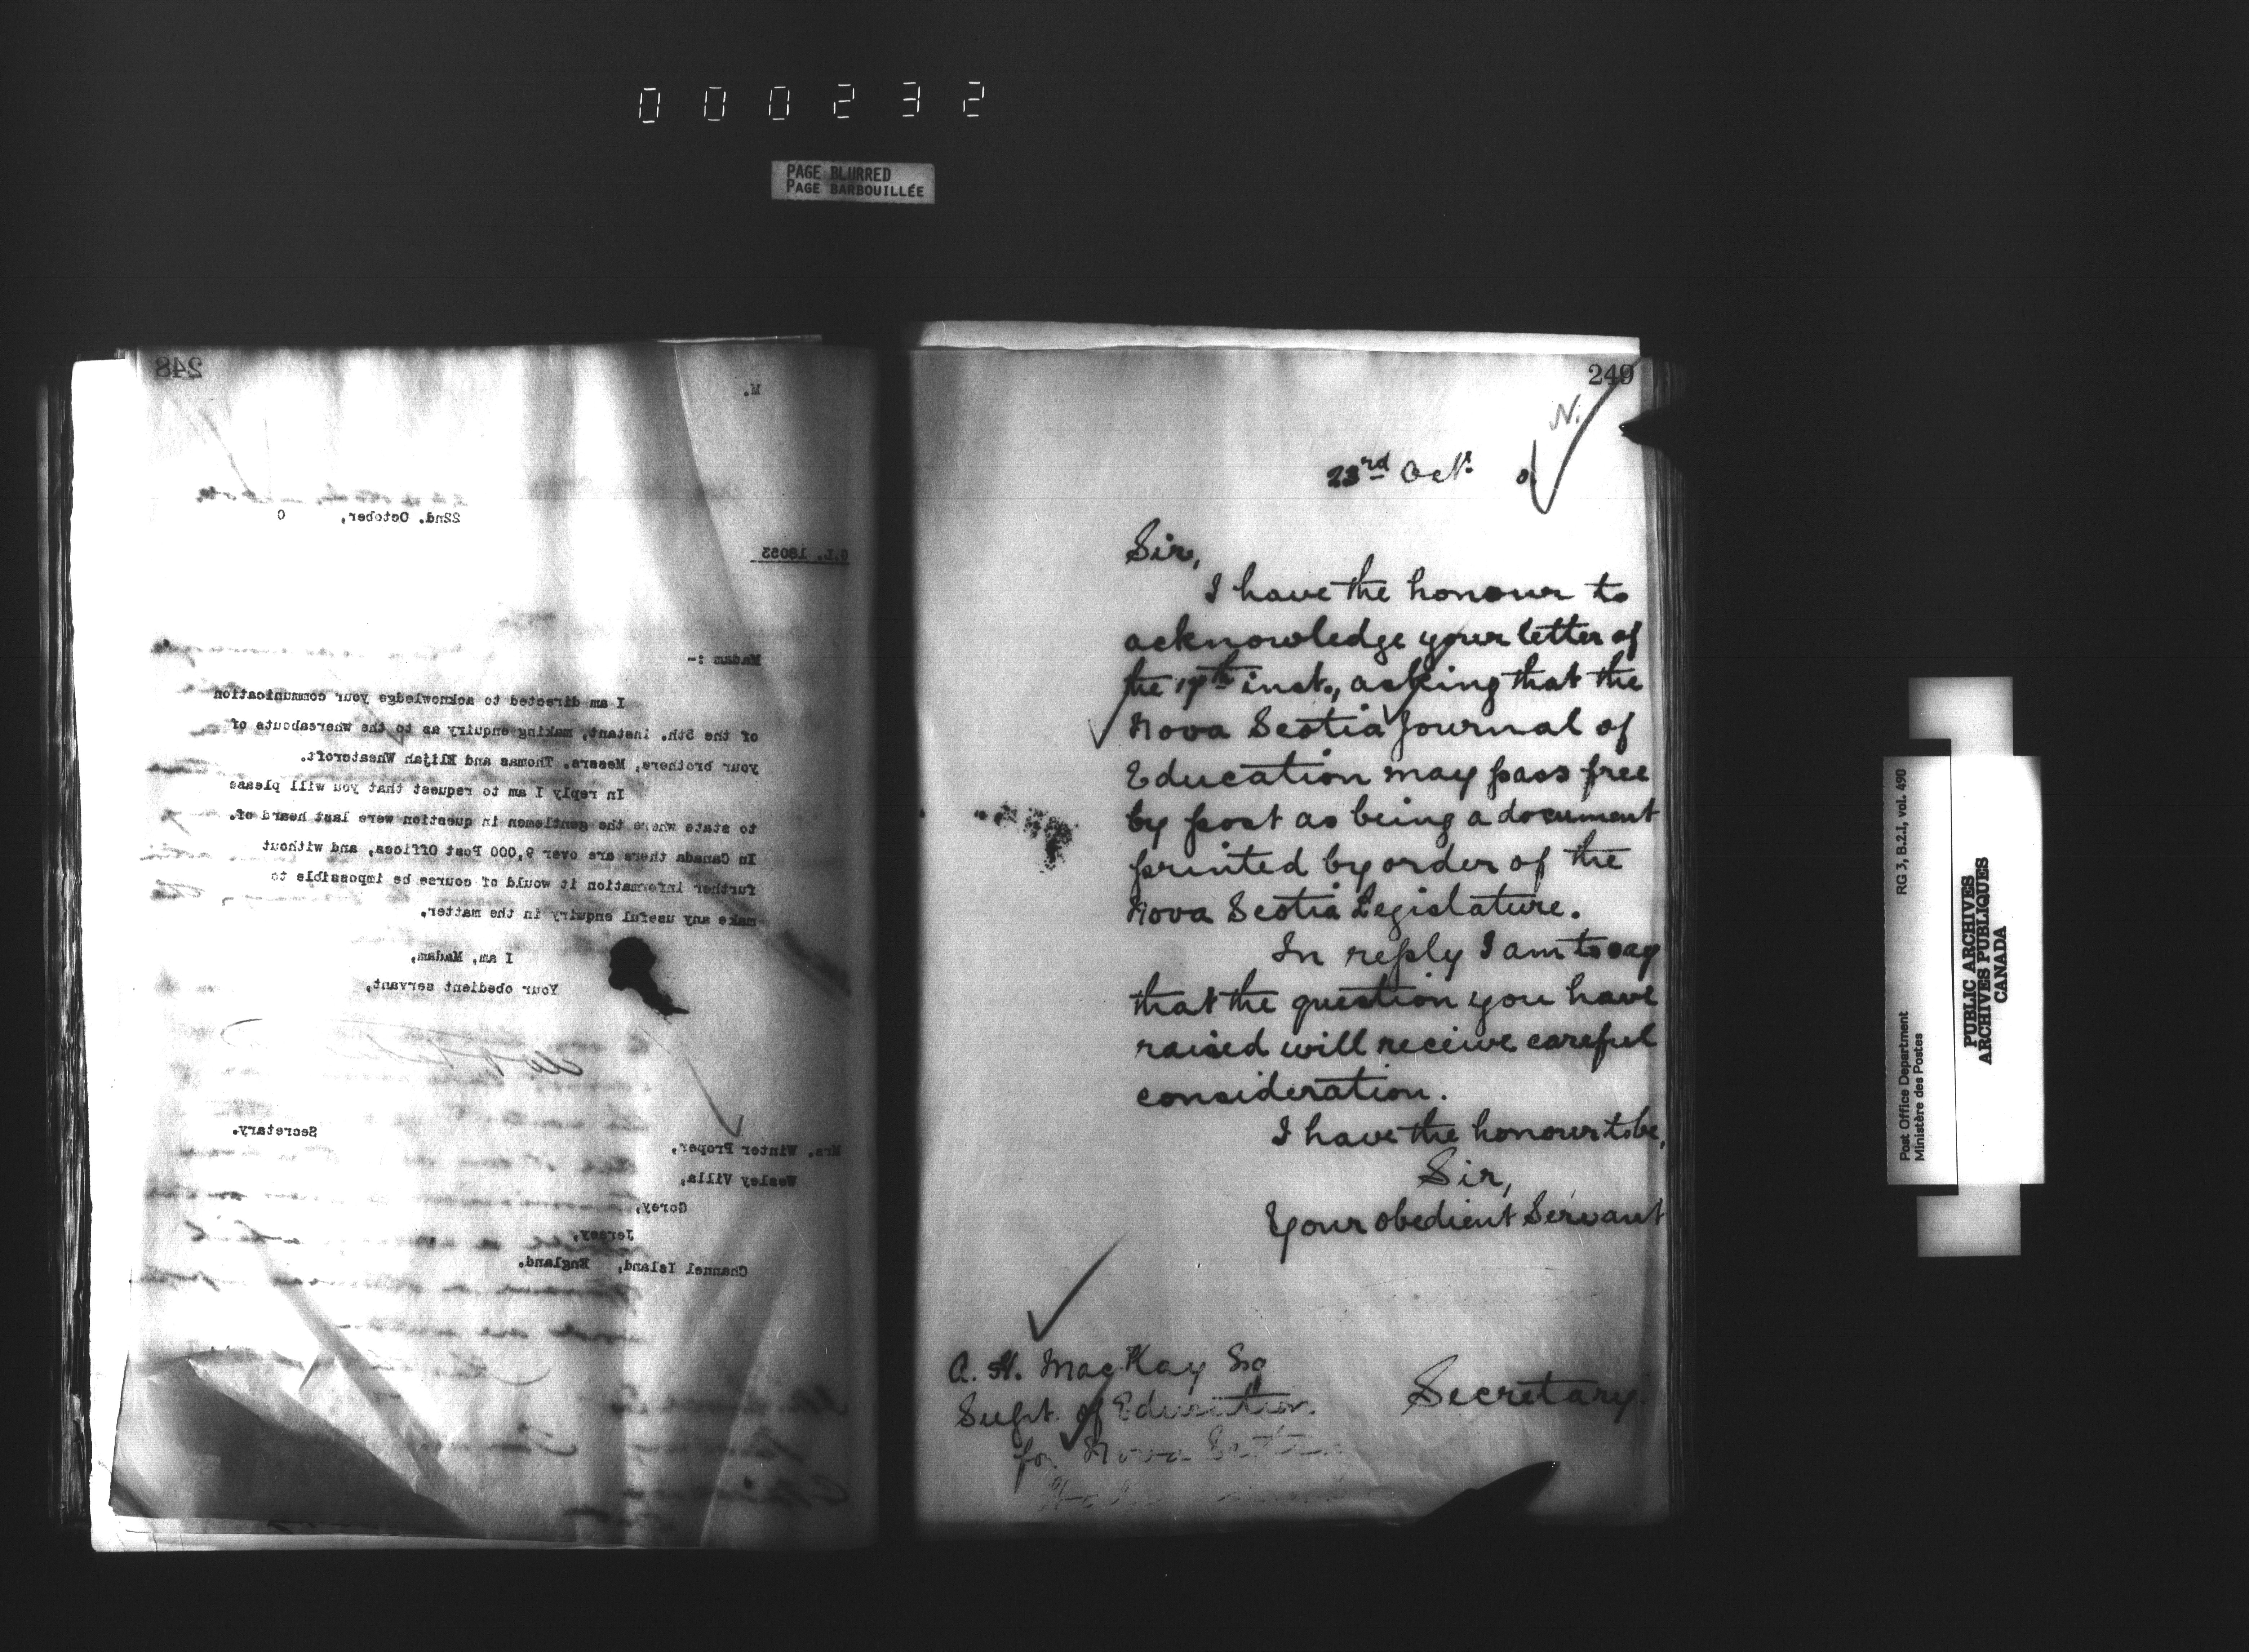 000232
PAGE BLURRED
PAGE BARBOUILLÉE
248
M.
22nd. October, 0
G.L. 18053
Madam :-
I am directed to acknowledge your communication
of the 5th. instant, making enquiry as to the whereabouts of
your brothers, Messrs. Thomas and Elijah Wheatcroft.
In reply I am to request that you will please
to state where the gentlemen in question were last heard of.
In Canada there are over 9,000 Post Offices, and without
further information it would of course be impossible to
make any useful enquiry in the matter.
I am, Madam,
Your obedient servant,
Secretary.
Mrs. Winter Proper,
Wesley Villa,
Gorey,
Jersey,
Channel Island, England.
249
N.
23rd Oct. 0
Sir,
I have the honour to
acknowledge your letter of
the 17th inst., asking that the
Nova Scotia Journal of
Education may pass free
by post as being a document
printed by order of the
Nova Scotia Legislature.
In reply I am to say
that the question you have
raised will receive careful
consideration.
I have the honour to be,
Sir,
Your obedient Servant
A. H. MacKay Esq
Supt. of Education
for Nova Scotia
Secretary.
RG 3, B.2.I, vol. 490
Post Office Department
Ministère des Postes
PUBLIC ARCHIVES
ARCHIVES PUBLIQUES
CANADA